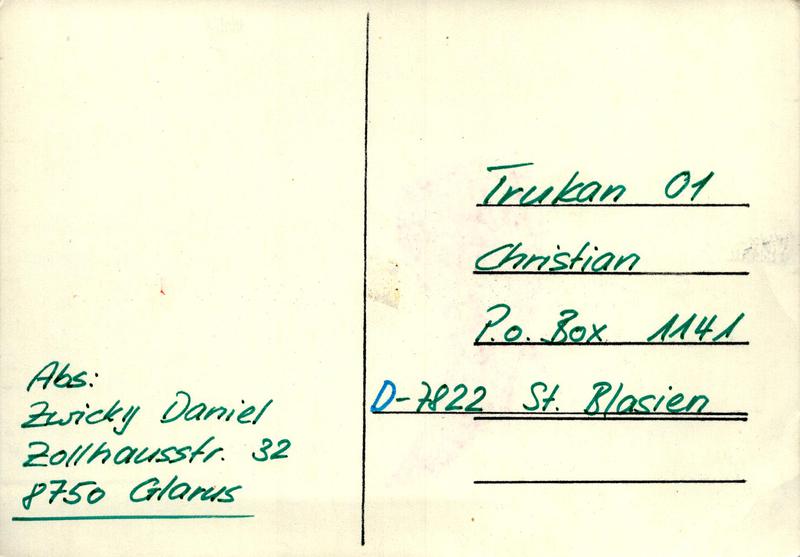 Trukan 01
Christian
P.o. Box 1141
D-7822 St. Blasien
Abs:
Zwicky Daniel
Zollhausstr. 32
8750 Glarus